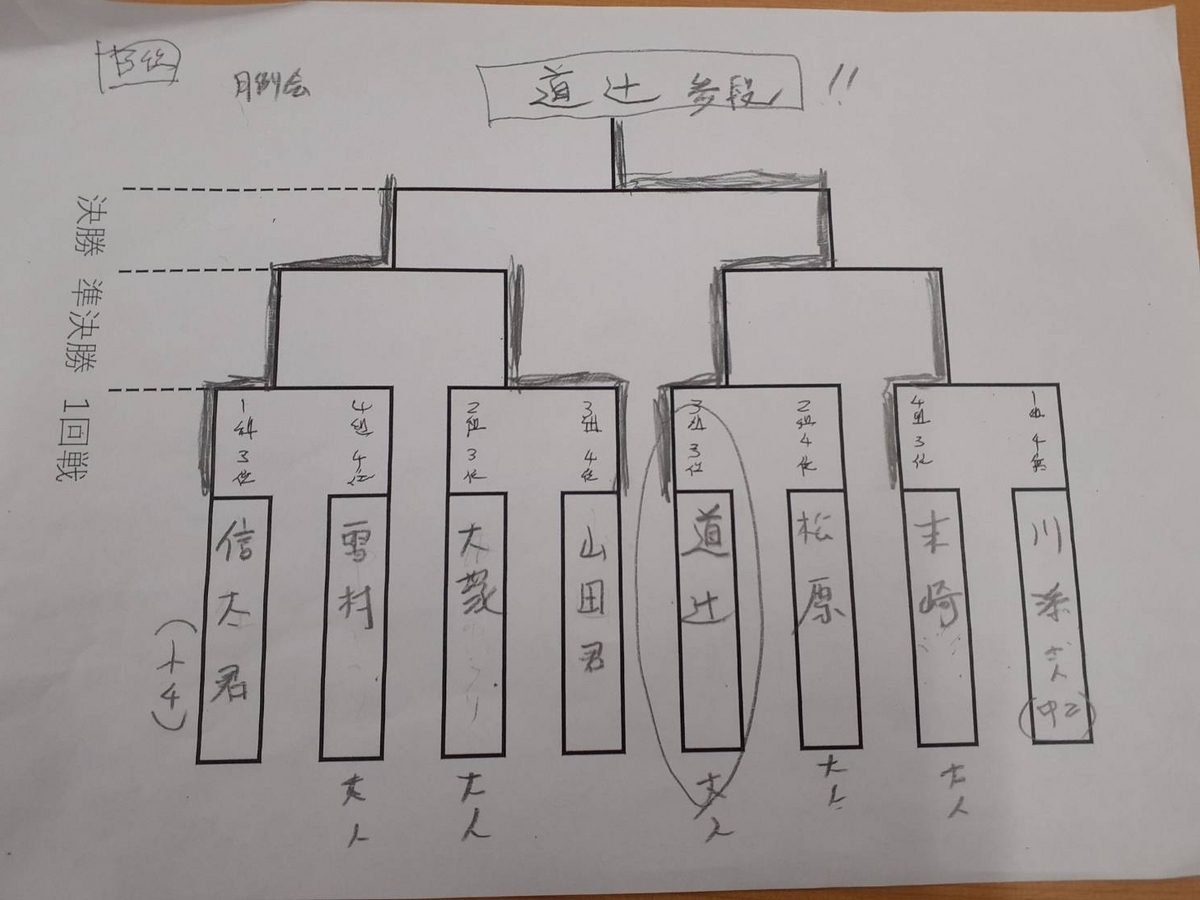 B級
月例会
道辻 参段 !!
決勝
準決勝
1回戦
1組3位
4組4位
2組3位
3組4位
3組3位
2組4位
4組3位
1組4位
信太君
雪村
山田君
道辻
松原
末崎
川添
(中2)
(+4)
大人
大人
大人
大人
大人